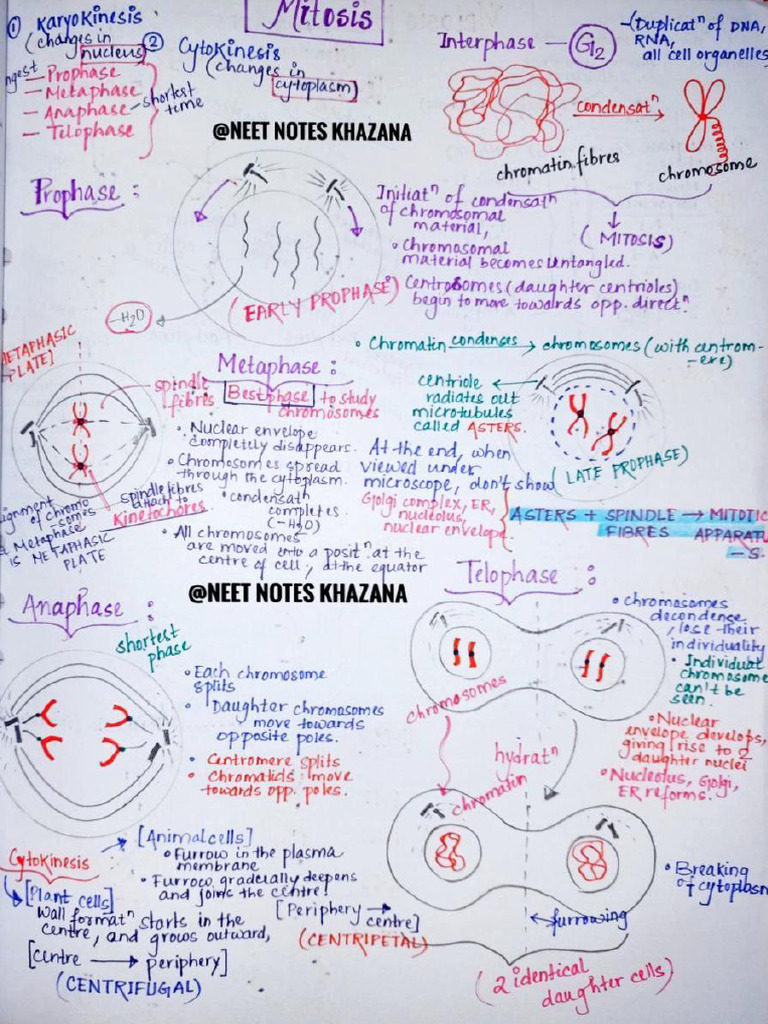 Mitosis
① Karyokinesis
(changes in
nucleus)
— Prophase
— Metaphase
— Anaphase — shortest time
— Telophase
② Cytokinesis
(changes in
cytoplasm)
Interphase — G₂
(Duplicatⁿ of DNA,
RNA,
all cell organelles
condensatⁿ
chromatin fibres
chromosome
(MITOSIS)
@NEET NOTES KHAZANA
Prophase :
Initiatⁿ of condensatⁿ
of chromosomal
material,
• Chromosomal
material becomes untangled.
Centrosomes (daughter centrioles)
begin to move towards opp. directⁿ.
(EARLY PROPHASE)
-H₂O
• Chromatin condenses → chromosomes (with centrom-
-ere)
centriole
radiates out
microtubules
called ASTERS.
(LATE PROPHASE)
At the end, when
viewed under
microscope, don't show
Golgi complex, ER,
nucleolus,
nuclear envelope
ASTERS + SPINDLE → MITOTIC
FIBRES APPARATU
-S.
METAPHASIC
PLATE]
Metaphase :
Best phase to study
chromosomes
spindle
fibres
• Nuclear envelope
completely disappears.
• Chromosomes spread
through the cytoplasm.
• condensatⁿ
completes
(-H₂O)
• All chromosomes
are moved into a positⁿ at the
centre of cell, at the equator
spindle fibres
attach to
kinetochores.
ignment
of chromo
-somes
Metaphase
is METAPHASIC
PLATE
@NEET NOTES KHAZANA
Anaphase :
shortest
phase
• Each chromosome
splits
• Daughter chromosomes
move towards
opposite poles.
• Centromere splits
• Chromatids move
towards opp. poles.
Telophase :
• Chromosomes
decondense
, lose their
individuality
• Individual
chromosome
can't be
seen.
• Nuclear
envelope develops,
giving rise to 2
daughter nuclei
• Nucleolus, Golgi,
ER reforms.
chromosomes
hydratⁿ
chromatin
• Breaking
of cytoplasm
furrowing
(2 identical
daughter cells)
Cytokinesis
[Animal cells]
• Furrow in the plasma
membrane
• Furrow gradually deepens
and joins the centre!
[Periphery → centre]
(CENTRIPETAL)
[Plant cells]
Wall formatⁿ starts in the
centre, and grows outward,
[centre → periphery]
(CENTRIFUGAL)